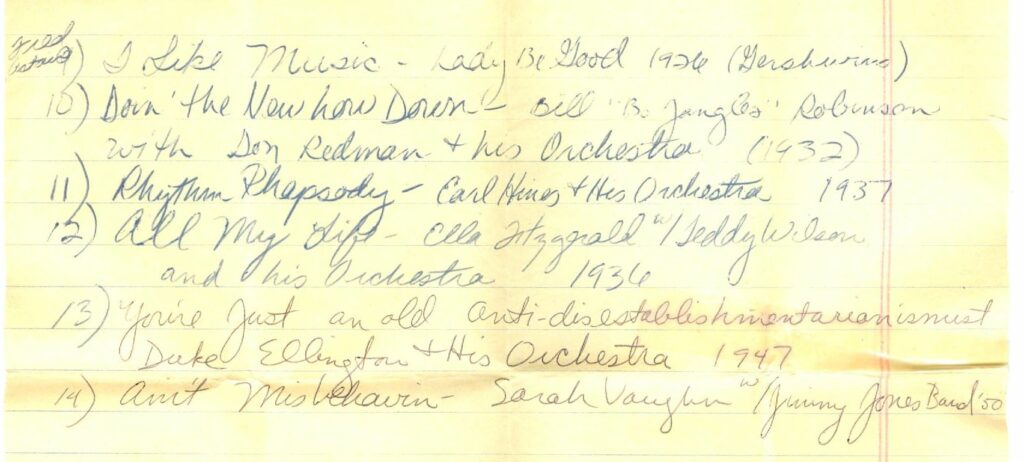 Fred
Astaire
9) I Like Music - Lady Be Good 1926 (Gershwins)
10) Doin' the New Low Down - Bill "Bo Jangles" Robinson
with Don Redman + his Orchestra (1932)
11) Rhythm Rhapsody - Earl Hines + His Orchestra 1937
12) All My Life - Ella Fitzgerald w/Teddy Wilson
and his Orchestra 1936
13) "You're Just an old Anti-disestablishmentarianismist
Duke Ellington + His Orchestra 1947
14) Ain't Misbehavin - Sarah Vaughn w/Jimmy Jones Band '50